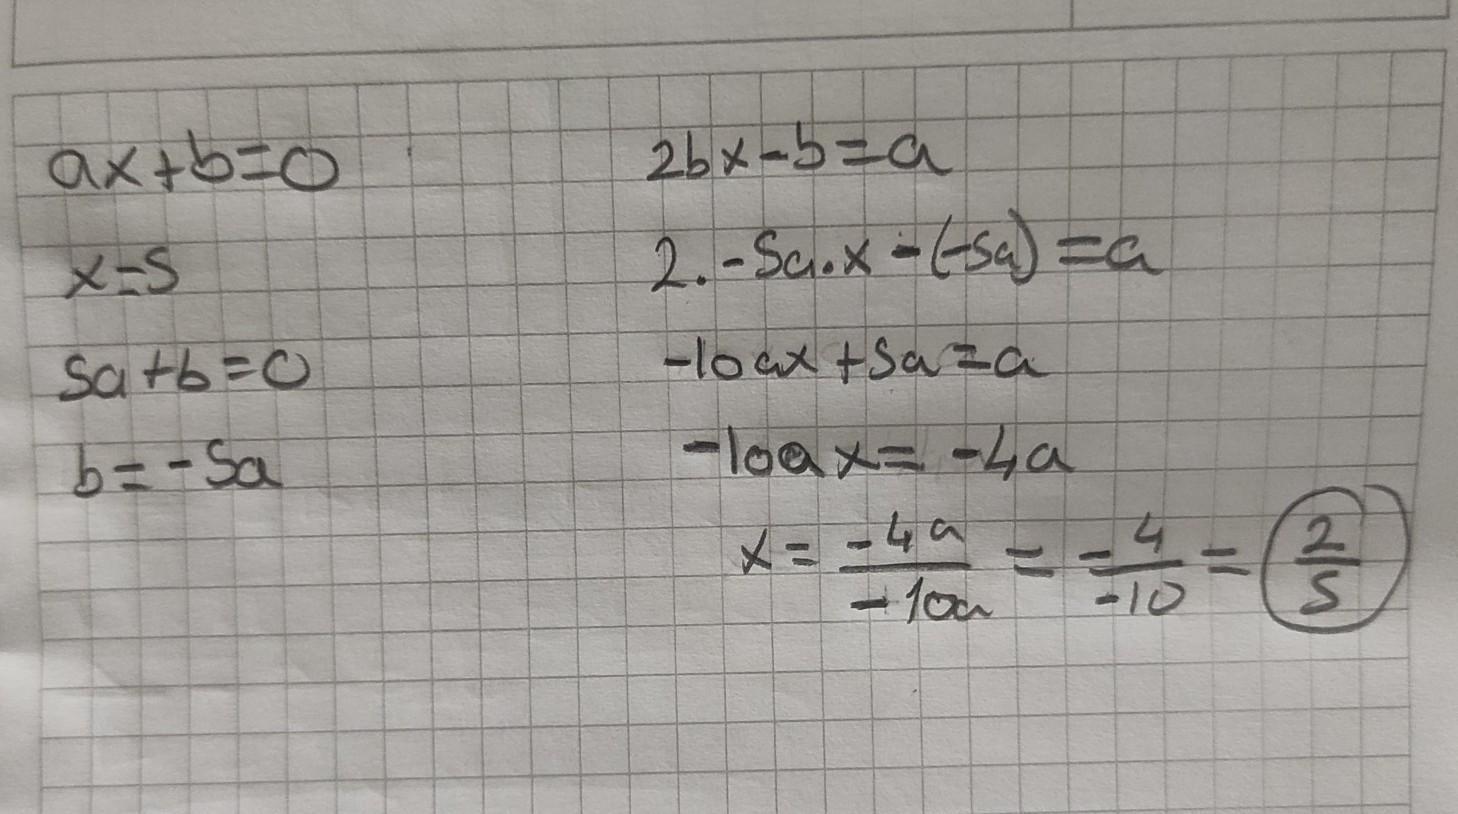 ax+b=0
x=5
5a+b=0
b=-5a
2bx-b=a
2.-5a.x-(-5a)=a
-10ax+5a=a
-10ax=-4a
x=\frac{-4a}{-10a}=\frac{-4}{-10}=\frac{2}{5}